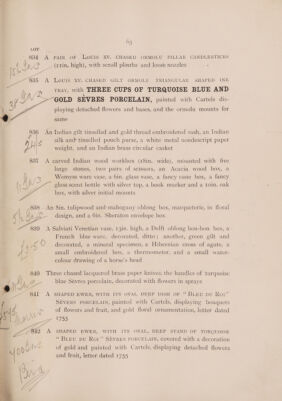 63
LOT
834 A PAIR OF LOUIS XV. CHASED ORMOLU PILLAR CANDLESTICKS
(11in. high), with scroll plinths and loose nozzles
835 A LOUIS XV. CHASED GILT ORMOLU TRIANGULAR SHAPED INK
TRAY, with THREE CUPS OF TURQUOISE BLUE AND
GOLD SÈVRES PORCELAIN, painted with Cartels dis-
playing detached flowers and bases, and the ormolu mounts for
same
836 An Indian gilt tinselled and gold thread embroidered sash, an Indian
silk and tinselled pouch purse, a white metal nondescript paper
weight, and an Indian brass circular casket
837 A carved Indian wood workbox (18in. wide), mounted with five
large stones, two pairs of scissors, an Acacia wood box, a
Wemyss ware vase, a 6in. glass vase, a fancy vase box, a fancy
glass scent bottle with silver top, a book marker and a 10in. oak
box, with silver initial mounts
838 An 8in. tulipwood and mahogany oblong box, marqueterie, in floral
design, and a 6in. Sheraton envelope box
839 A Salviati Venetian vase, 15in. high, a Delft oblong bon-bon box, a
French blue ware, decorated, ditto; another, green gilt and
decorated, a mineral specimen, a Hibernian cross of agate, a
small embroidered box, a thermometer, and a small water-
colour drawing of a horse's head
840 Three chased lacquered brass paper knives, the handles of turquoise
blue Sèvres porcelain, decorated with flowers in sprays
841 A SHAPED EWER, WITH ITS OVAL DEEP DISH OF "BLEU DU ROI"
SÈVRES PORCELAIN, painted with Cartels, displaying bouquets
of flowers and fruit, and gold floral ornamentation, letter dated
1753
842 A SHAPED EWER, WITH ITS OVAL, DEEP STAND OF TURQUOISE
"BLEU DU ROI" SÈVRES PORCELAIN, covered with a decoration
of gold and painted with Cartels, displaying detached flowers
and fruit, letter dated 1755